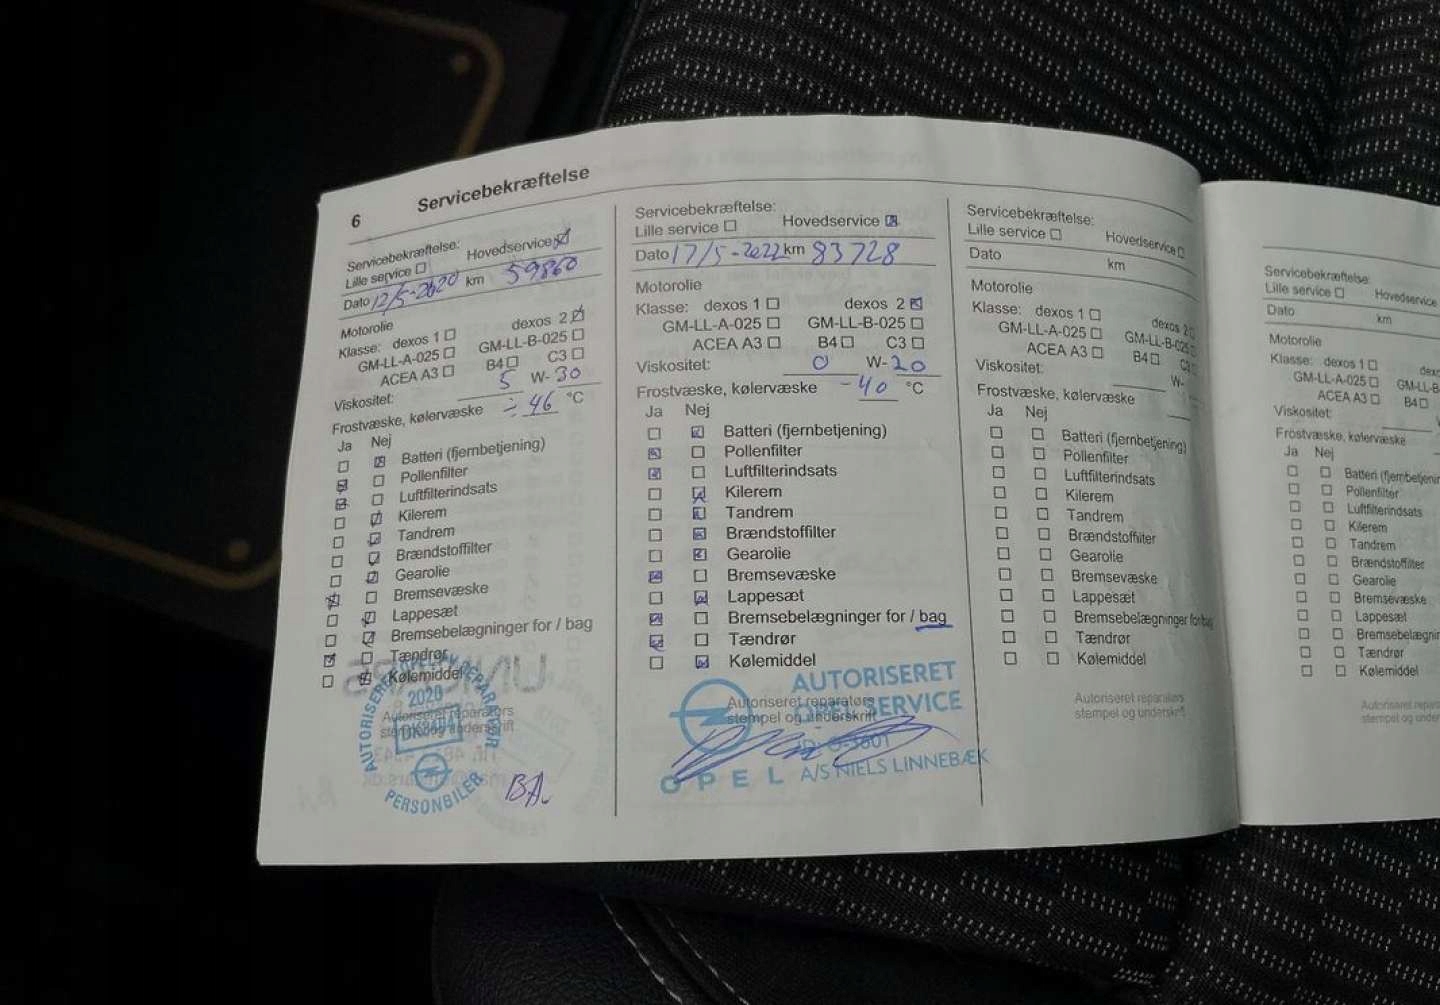 6 Servicebekræftelse
Servicebekræftelse:
Lille service ☐ Hovedservice ☒
Dato 12/5-2020 km 59860
Motorolie
Klasse: dexos 1 ☐ dexos 2 ☒
GM-LL-A-025 ☐ GM-LL-B-025 ☐
ACEA A3 ☐ B4 ☐ C3 ☐
Viskositet: 5 W-30
Frostvæske, kølervæske ÷46 °C
Ja Nej
☐ ☒ Batteri (fjernbetjening)
☒ ☐ Pollenfilter
☒ ☐ Luftfilterindsats
☐ ☒ Kilerem
☐ ☒ Tandrem
☐ ☒ Brændstoffilter
☐ ☒ Gearolie
☒ ☐ Bremsevæske
☐ ☒ Lappesæt
☐ ☒ Bremsebelægninger for / bag
☒ ☐ Tændrør
☐ ☒ Kølemiddel
Autoriseret reparatørs
stempel og underskrift
AUTORISERET OPEL REPARATØR
2020
PERSONBILER
BA.
Servicebekræftelse:
Lille service ☐ Hovedservice ☒
Dato 17/5-2022 km 83728
Motorolie
Klasse: dexos 1 ☐ dexos 2 ☒
GM-LL-A-025 ☐ GM-LL-B-025 ☐
ACEA A3 ☐ B4 ☐ C3 ☐
Viskositet: 0 W-20
Frostvæske, kølervæske -40 °C
Ja Nej
☐ ☒ Batteri (fjernbetjening)
☒ ☐ Pollenfilter
☒ ☐ Luftfilterindsats
☐ ☒ Kilerem
☐ ☒ Tandrem
☐ ☒ Brændstoffilter
☐ ☒ Gearolie
☒ ☐ Bremsevæske
☐ ☒ Lappesæt
☒ ☐ Bremsebelægninger for / bag
☒ ☐ Tændrør
☐ ☒ Kølemiddel
AUTORISERET
Autoriseret reparatørs
OPEL SERVICE
stempel og underskrift
OPEL A/S NIELS LINNEBÆK
Servicebekræftelse:
Lille service ☐ Hovedservice ☐
Dato km
Motorolie
Klasse: dexos 1 ☐ dexos 2 ☐
GM-LL-A-025 ☐ GM-LL-B-025 ☐
ACEA A3 ☐ B4 ☐ C3 ☐
Viskositet: W-
Frostvæske, kølervæske
Ja Nej
☐ ☐ Batteri (fjernbetjening)
☐ ☐ Pollenfilter
☐ ☐ Luftfilterindsats
☐ ☐ Kilerem
☐ ☐ Tandrem
☐ ☐ Brændstoffilter
☐ ☐ Gearolie
☐ ☐ Bremsevæske
☐ ☐ Lappesæt
☐ ☐ Bremsebelægninger for / bag
☐ ☐ Tændrør
☐ ☐ Kølemiddel
Autoriseret reparatørs
stempel og underskrift
Servicebekræftelse:
Lille service ☐ Hovedservice
Dato km
Motorolie
Klasse: dexos 1 ☐
GM-LL-A-025 ☐
ACEA A3 ☐ B4 ☐
Viskositet:
Frostvæske, kølervæske
Ja Nej
☐ ☐ Batteri
☐ ☐ Pollenfilter
☐ ☐ Luftfilterindsats
☐ ☐ Kilerem
☐ ☐ Tandrem
☐ ☐ Brændstoffilter
☐ ☐ Gearolie
☐ ☐ Bremsevæske
☐ ☐ Lappesæt
☐ ☐
☐ ☐ Tændrør
☐ ☐ Kølemiddel
Autoriseret
stempel og underskrift